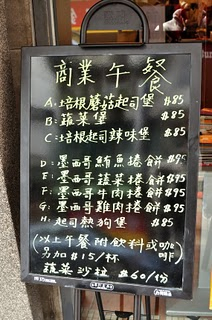 商業午餐
A:培根蘑菇起司堡 $85
B:蔬菜堡 $85
C:培根起司辣味堡 $85
D:墨西哥鮪魚捲餅 $95
E:墨西哥蔬菜捲餅 $95
F:墨西哥牛肉捲餅 $95
G:墨西哥雞肉捲餅 $95
H:起司熱狗堡 $85
(以上午餐附飲料或咖啡)
另加$15/杯
蔬菜沙拉 $60/份